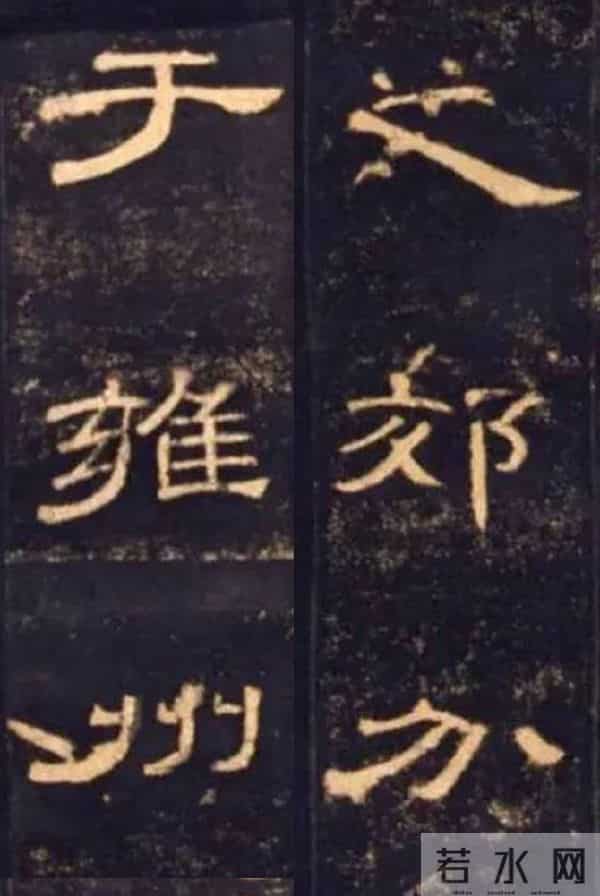 于雍州
之郊分
若水网